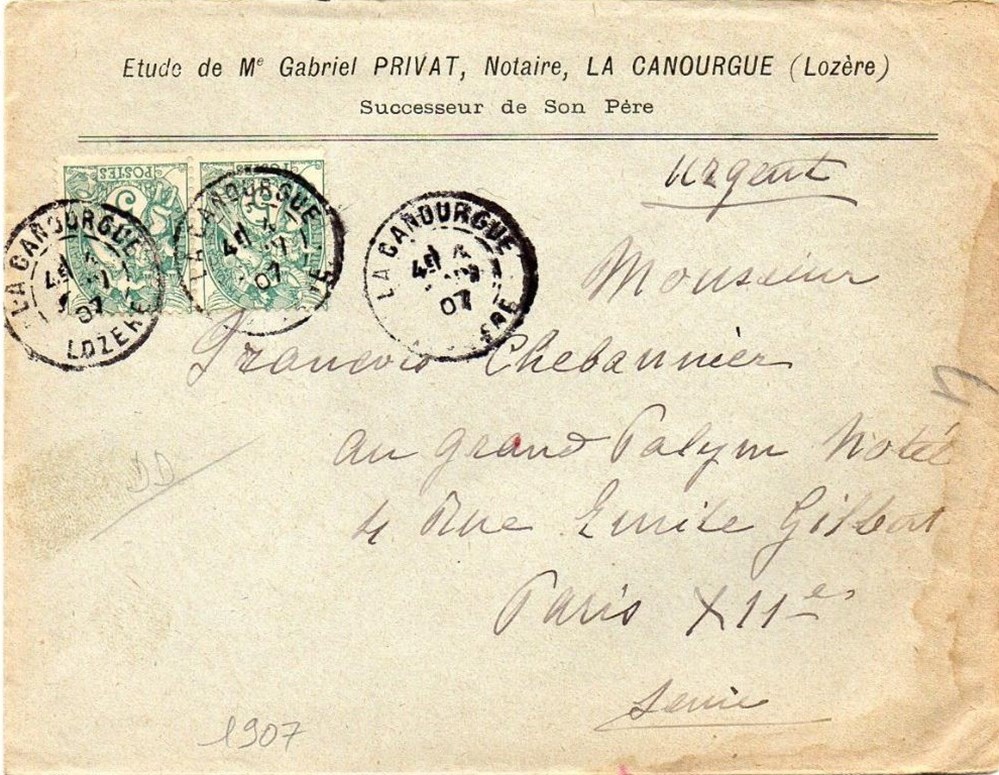 Etude de Me Gabriel PRIVAT, Notaire, LA CANOURGUE (Lozère)
Successeur de Son Père
Urgent
POSTES
POSTES
5
5
LA CANOURGUE
4
07
LOZERE
LA CANOURGUE
4
07
LA CANOURGUE
4
07
ERE
Monsieur
Francois Chebannier
au grand Hotel
4 Rue Emile Gilbert
Paris XIIe
Seine
1907